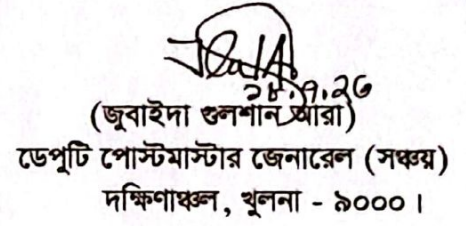 ২৮.৭.২৫
(জুবাইদা গুলশান আরা)
ডেপুটি পোস্টমাস্টার জেনারেল (সঞ্চয়)
দক্ষিণাঞ্চল, খুলনা - ৯০০০।